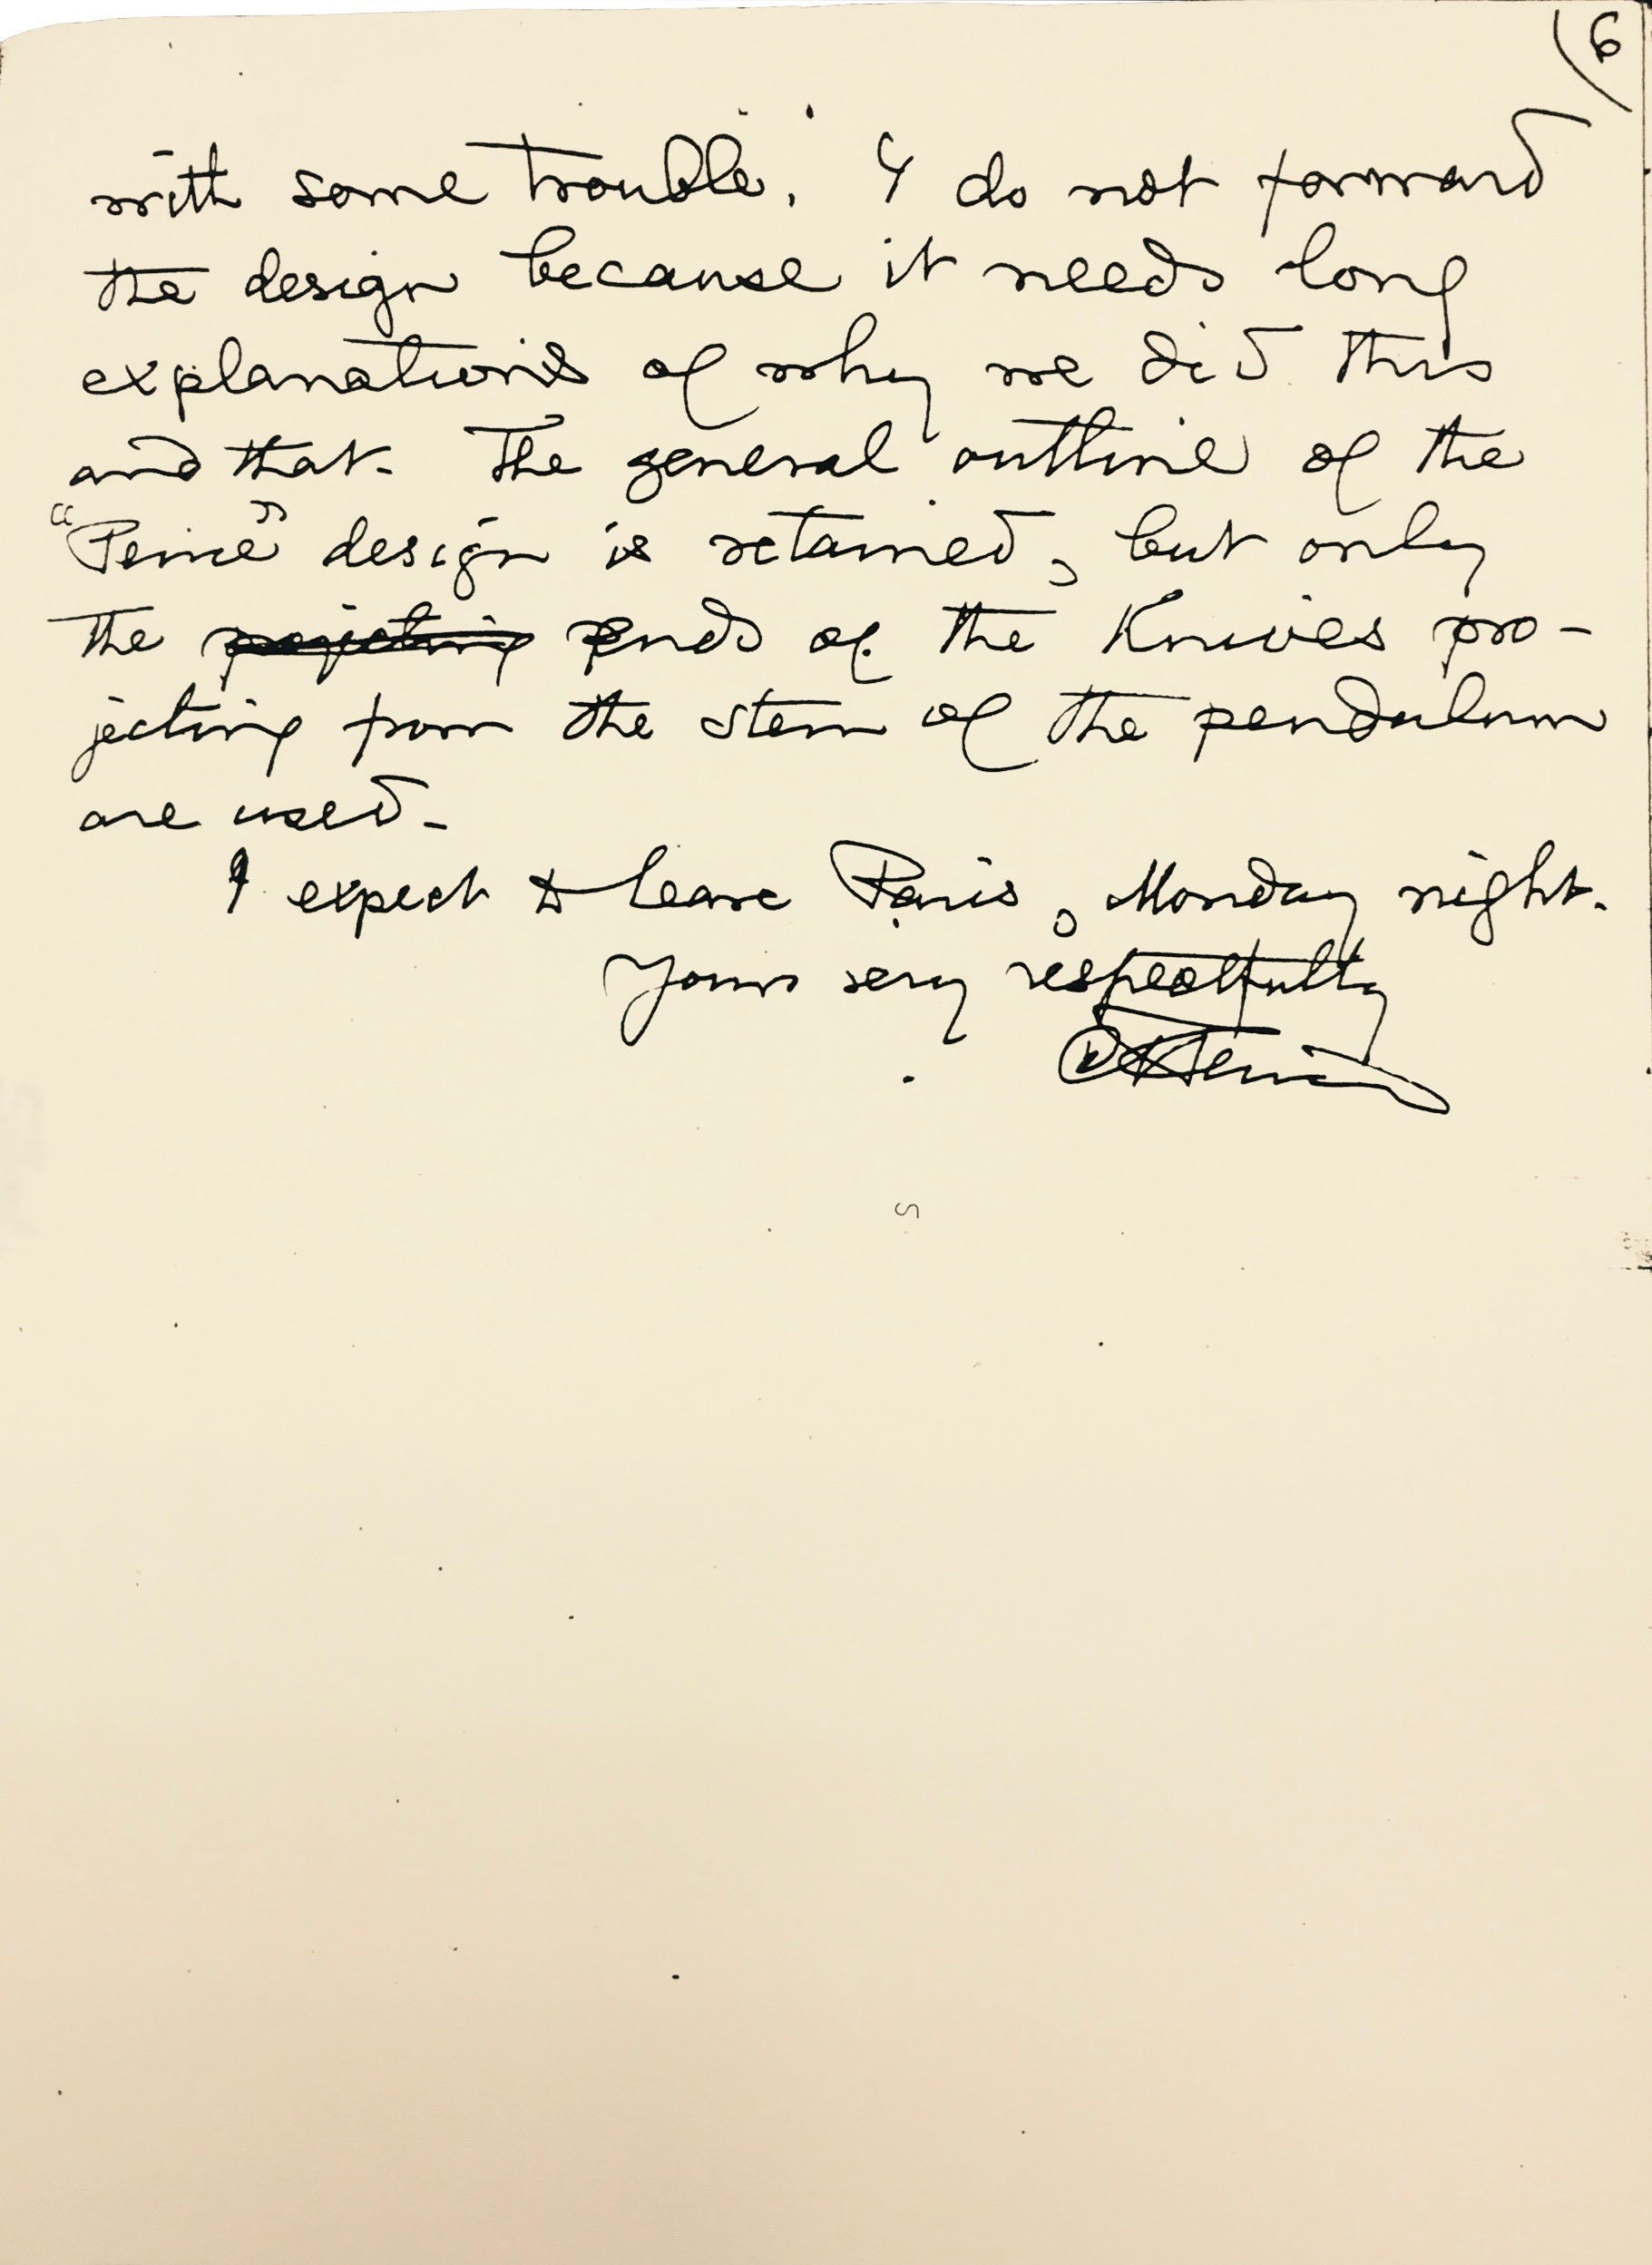 6
with some trouble. I do not forward
the design because it needs long
explanations of why we did this
and that. The general outline of the
"Peirce" design is retained, but only
the projecting ends of the knives pro-
jecting from the stem of the pendulum
are used.
I expect to leave Paris, Monday night.
Yours very respectfully